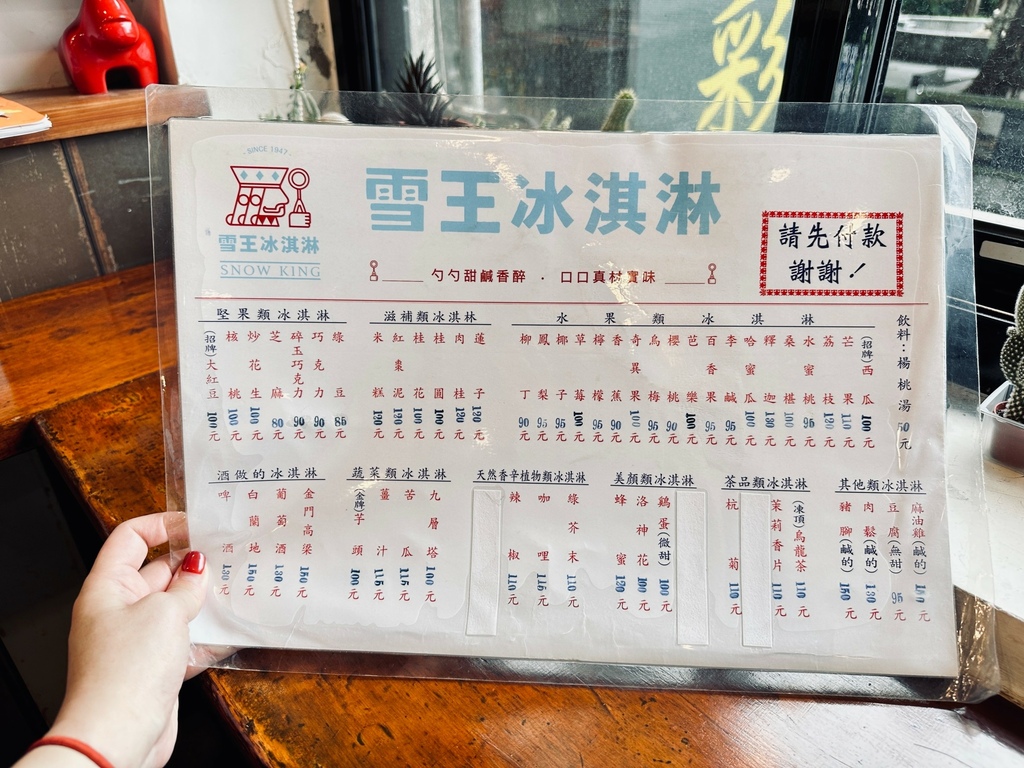 彩
SINCE 1947
雪王冰淇淋
SNOW KING
雪王冰淇淋
勺勺甜鹹香醉 · 口口真材實味
請先付款
謝謝！
堅果類冰淇淋
(招牌)大紅豆 100元
核桃 100元
炒花生 100元
芝麻 80元
碎玉巧克力 90元
巧克力 90元
綠豆 85元
滋補類冰淇淋
米糕 120元
紅棗泥 120元
桂花 100元
桂圓 100元
肉桂 120元
蓮子 120元
水果類冰淇淋
柳丁 90元
鳳梨 95元
椰子 95元
草莓 100元
檸檬 95元
香蕉 90元
奇異果 100元
烏梅 95元
櫻桃 90元
芭樂 100元
百香果 95元
李鹹 95元
哈蜜瓜 100元
釋迦 130元
桑椹 100元
水蜜桃 95元
荔枝 120元
芒果 110元
(招牌)西瓜 100元
飲料：楊桃湯 50元
酒做的冰淇淋
啤酒 130元
白蘭地 150元
葡萄酒 130元
金門高梁 150元
蔬菜類冰淇淋
(金牌)芋頭 100元
薑汁 115元
苦瓜 115元
九層塔 100元
天然香辛植物類冰淇淋
辣椒 110元
咖哩 115元
綠芥末 110元
美顏類冰淇淋
蜂蜜 120元
洛神花 100元
雞蛋(微甜) 100元
茶品類冰淇淋
杭菊 110元
茉莉香片 110元
(凍頂)烏龍茶 110元
其他類冰淇淋
豬腳(鹹的) 150元
肉鬆(鹹的) 130元
豆腐(無甜) 95元
麻油雞(鹹的) 元